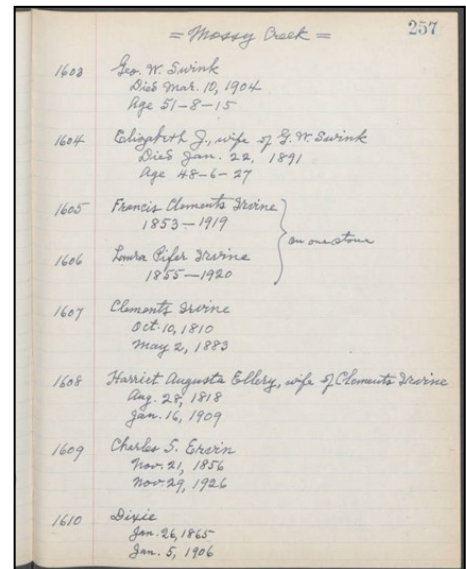 = Mossy Creek =
257
1603 Geo. W. Swink
Died Mar. 10, 1904
Age 51-8-15
1604 Elizabeth J., wife of G. W. Swink
Died Jan. 22, 1891
Age 48-6-27
1605 Francis Clements Irvine
1853-1919
on one stone
1606 Laura Pifer Irvine
1855-1920
1607 Clements Irvine
Oct. 10, 1810
May 2, 1883
1608 Harriet Augusta Ellery, wife of Clements Irvine
Aug. 28, 1818
Jan. 16, 1909
1609 Charles S. Ervin
Nov. 21, 1856
Nov. 29, 1926
1610 Dixie
Jan. 26, 1865
Jan. 5, 1906